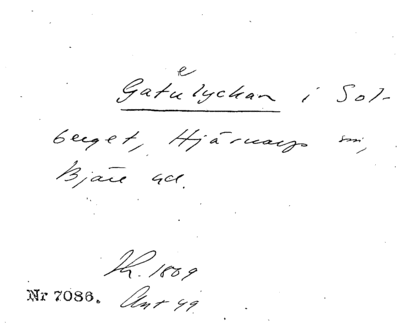 Gatulyckan i Sol-
berget, Hjärnarps sn,
Bjäre hd.
Th. 1809
Nr 7086. Ant 49.